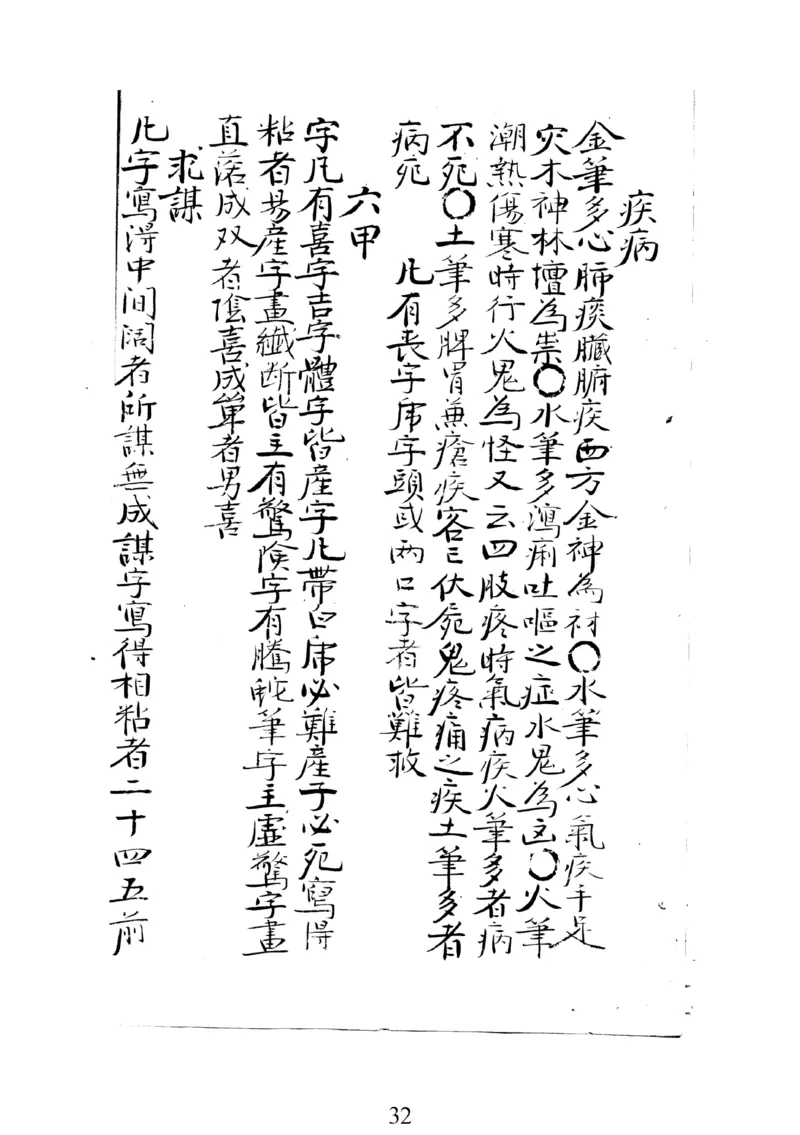 疾病
金筆多心肺痰臟腑疾西方金神為祔〇水筆多心氣疾手足
灾木神林壇為祟〇水筆多瀉痢吐嘔之症水鬼為㐫〇火筆
潮熱傷寒時行火鬼為怪又云四肢疼時氣病疾火筆多者病
不死〇土筆多脾胃蒸瘡疾客亡伏屍鬼疼痛之疾土筆多者
病死　凡有丧字虎字頭或两口字者皆難救
六甲
字凡有喜字吉字體字皆産字凡帶白虎必難産子必死寫得
粘者易産字畫纖断皆主有驚険字有騰蛇筆字主虛驚字畫
直落成双者陰喜成单者男喜
求謀
凡字寫得中间阔者所謀無成謀字寫得相粘者二十四五前
32